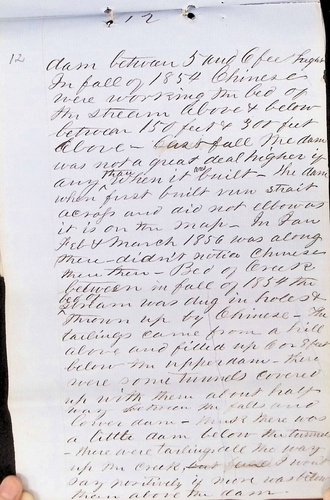 12
12
dam between 5 and 6 feet high
In fall of 1854 Chinese
were working the bed of
the stream above & below
between 150 feet & 300 feet
above – Last fall the dam
was not a great deal higher if
any than when it was built – The dam
when first built run strait
across and did not elbow as
it is on the map – In Jany
Feb & March 1856 was along
there – didn't notice Chinese
there then – Bed of Creek
between in fall of 1854 the
bed stream was dug in holes &
thrown up by Chinese – The
tailings came from a hill
above and filled up 6 or 8 feet
below the upper dam – there
were some tunnels covered
up with them about half
way between the falls and
lower dam – think there was
a little dam below the tunnels
– there were tailings all the way
up the creek I won't
say positively if more was below
than above the dam